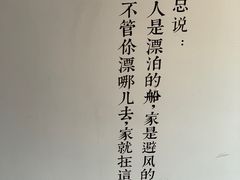 总说：
人是漂泊的船，家是避风的
不管你漂哪儿去，家就在這